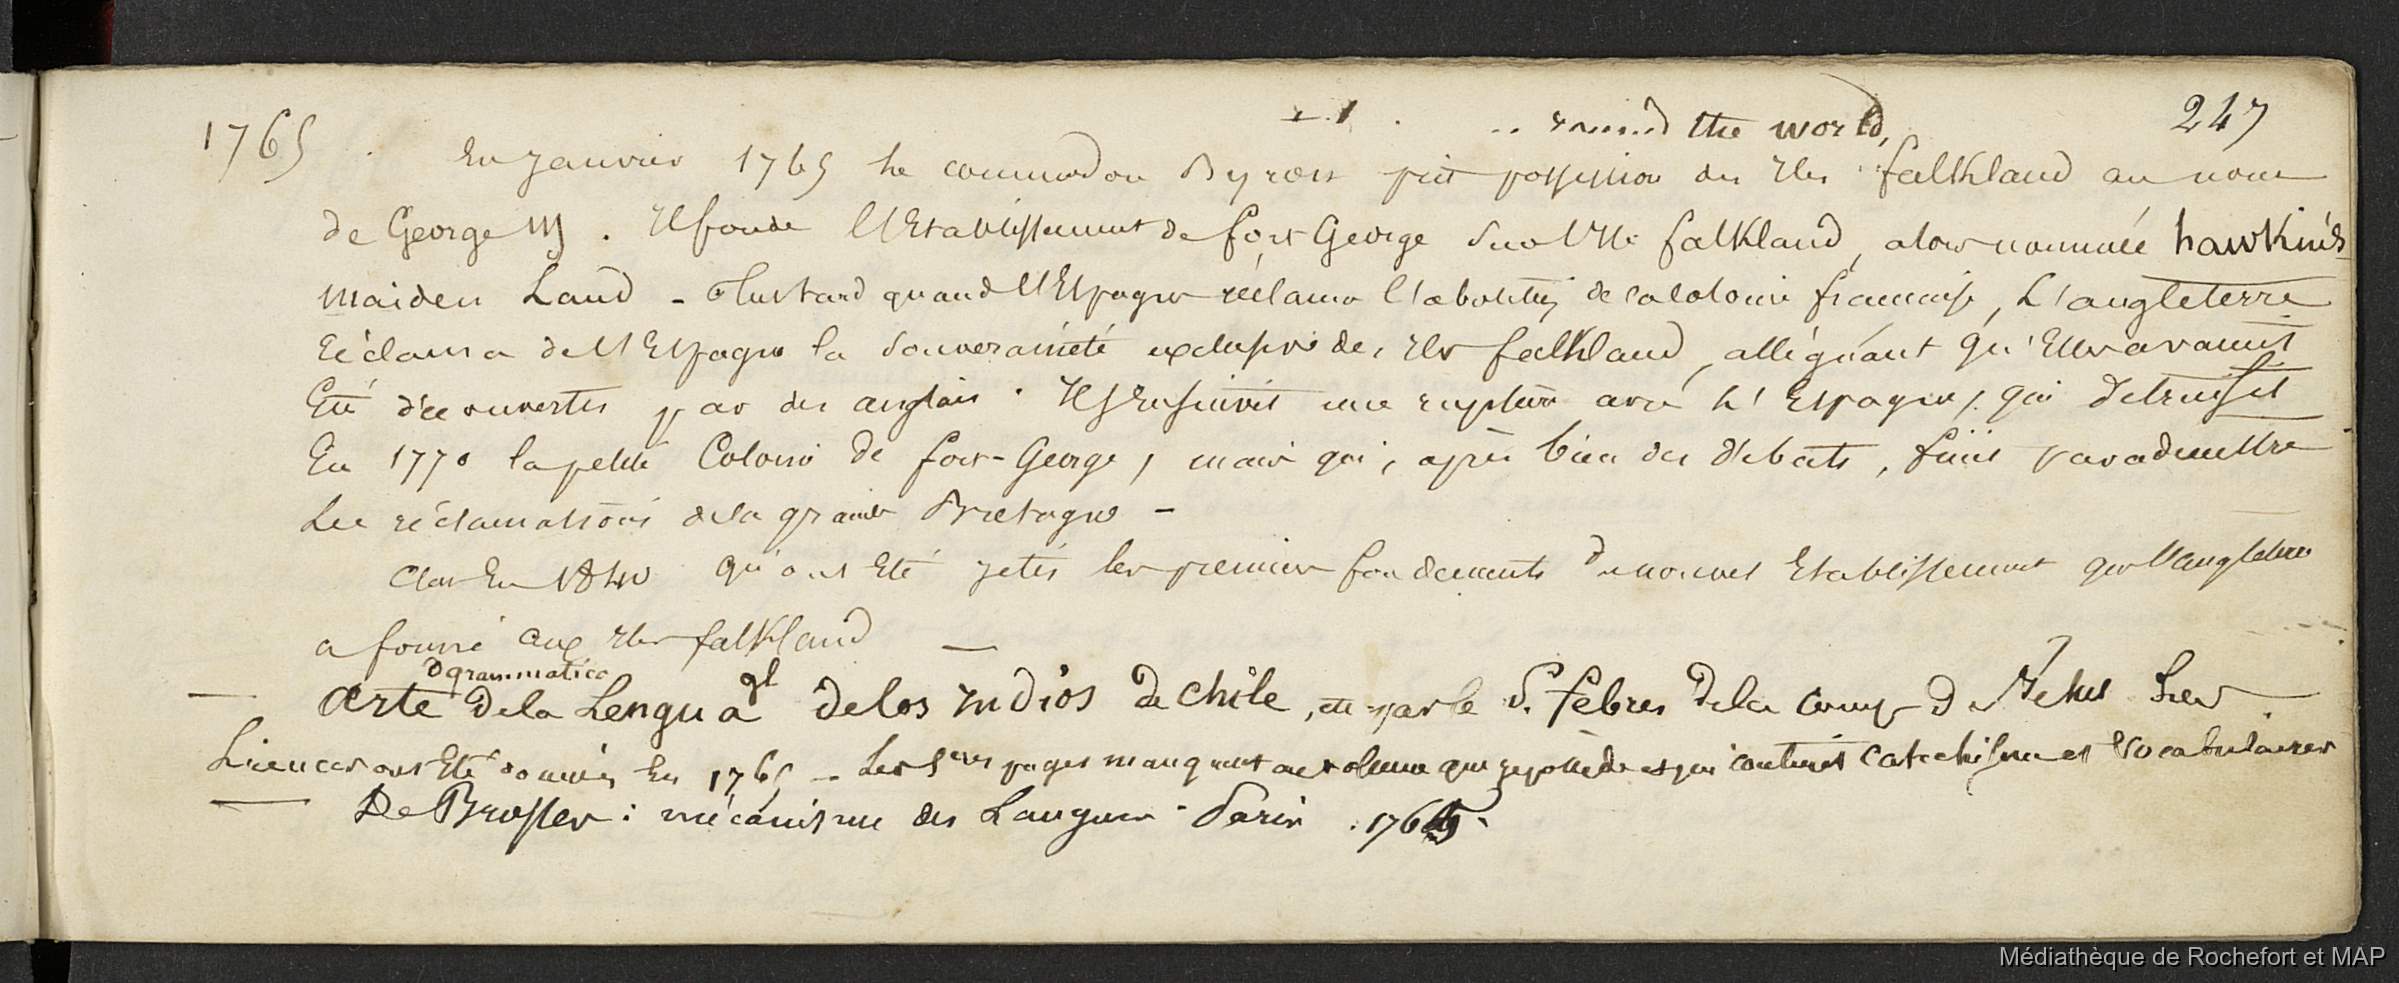 round the world,
247
1765
En Janvier 1765 le commodore Byron prit possession des Iles falkland au nom
de George III. Il fonde l'Etablissement de fort George sur l'Ile falkland, alors nommée hawkin's
maiden Land - Plus tard quand l'Espagne réclama l'abolition de la colonie française, L'angleterre
réclama de l'Espagne la souveraineté exclusive des Iles falkland, alléguant qu'Elles avaient
Eté découvertes par des anglais. Il s'Ensuivit une rupture avec L'Espagne, qui détruisit
En 1770 la petite Colonie de fort-George, mais qui, après bien des débats, finit par admettre
Les réclamations de la grande Bretagne -
C'est En 1840 qu'ont Eté jetés les premiers fondements du nouvel Etablissement que l'angleterre
a formé aux Iles falkland —
grammatica
— arte de la Lengua gl de los Indios de chile, etc par le P. febres de la Comp. de Jesus Les
Licences ont Eté données En 1765 - Les 5 ères pages manquent au volume que je possède et qui contient catechisme et Vocabulaires
— De Brosses : mécanisme des Langues - Paris . 1765.
Médiathèque de Rochefort et MAP